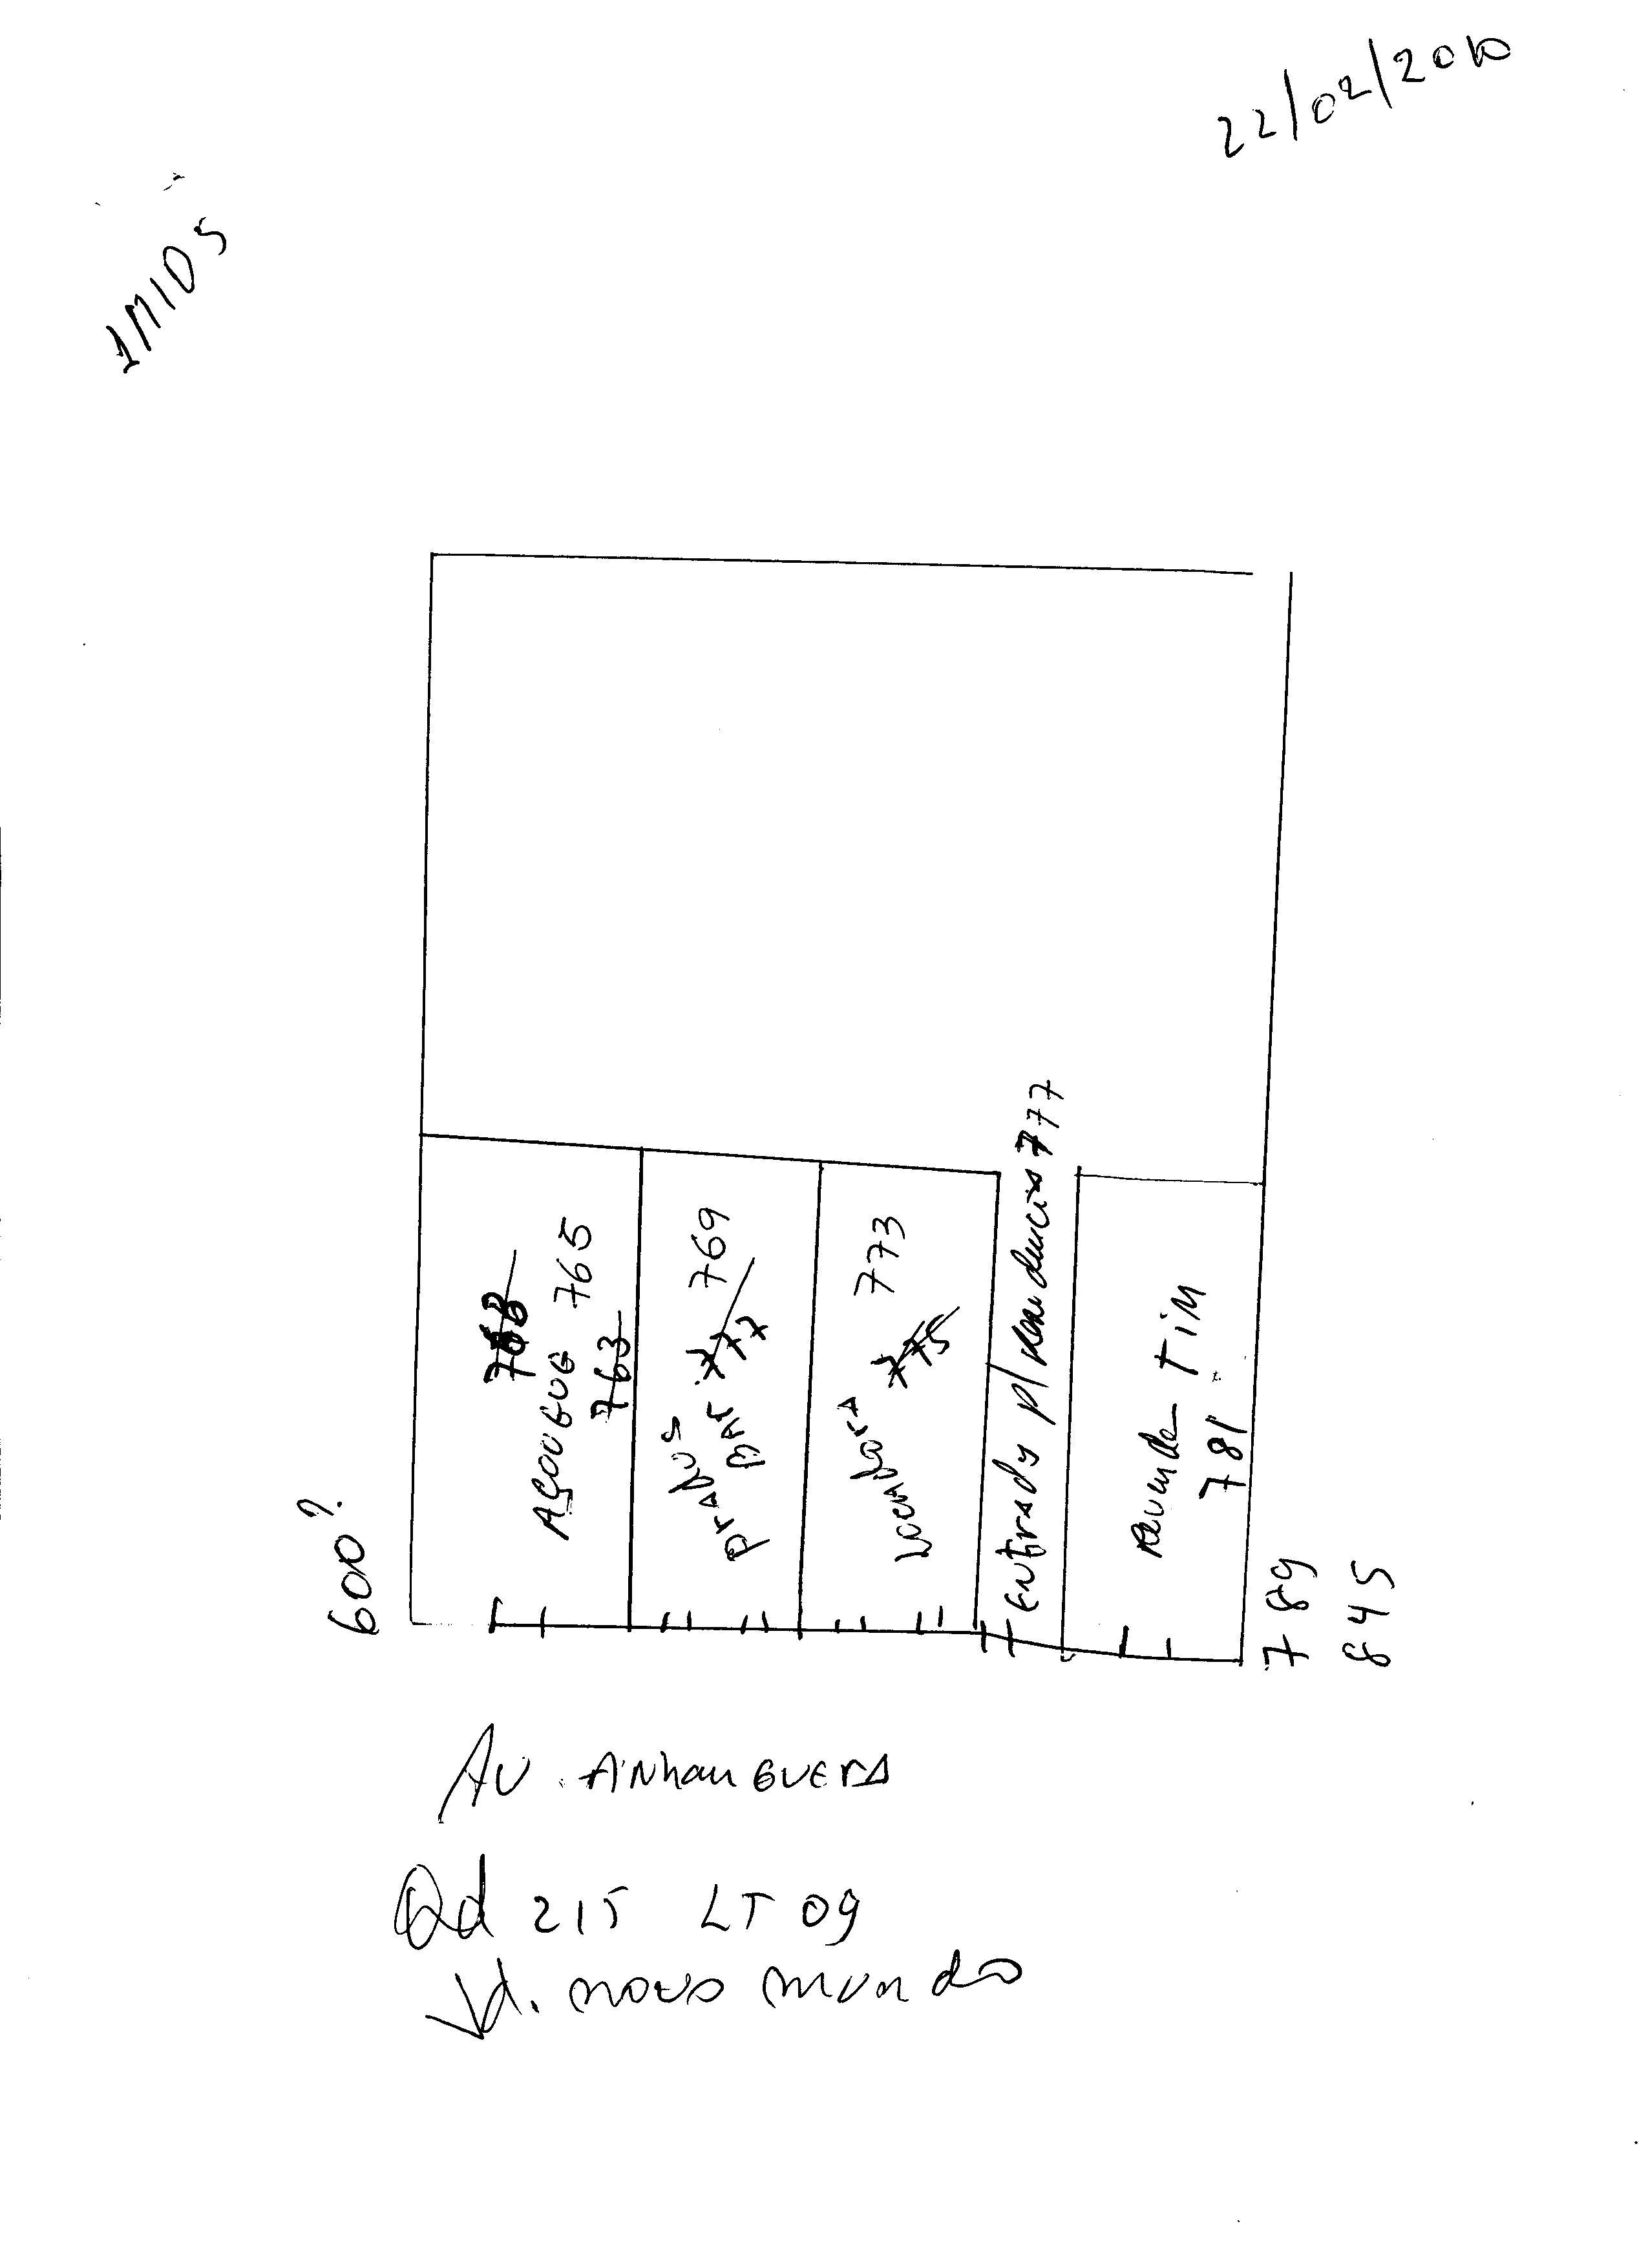 22/02/2010
1M105
600?
768
AÇOUGUE 765
763
PrADO'S
BAR 777 769
LOCADORA 775 773
Entrada p/ residencias 777
Revende TIM
781
789
845
AV. ANhanGUERA
Qd 215 LT 09
Jd. novo mundo